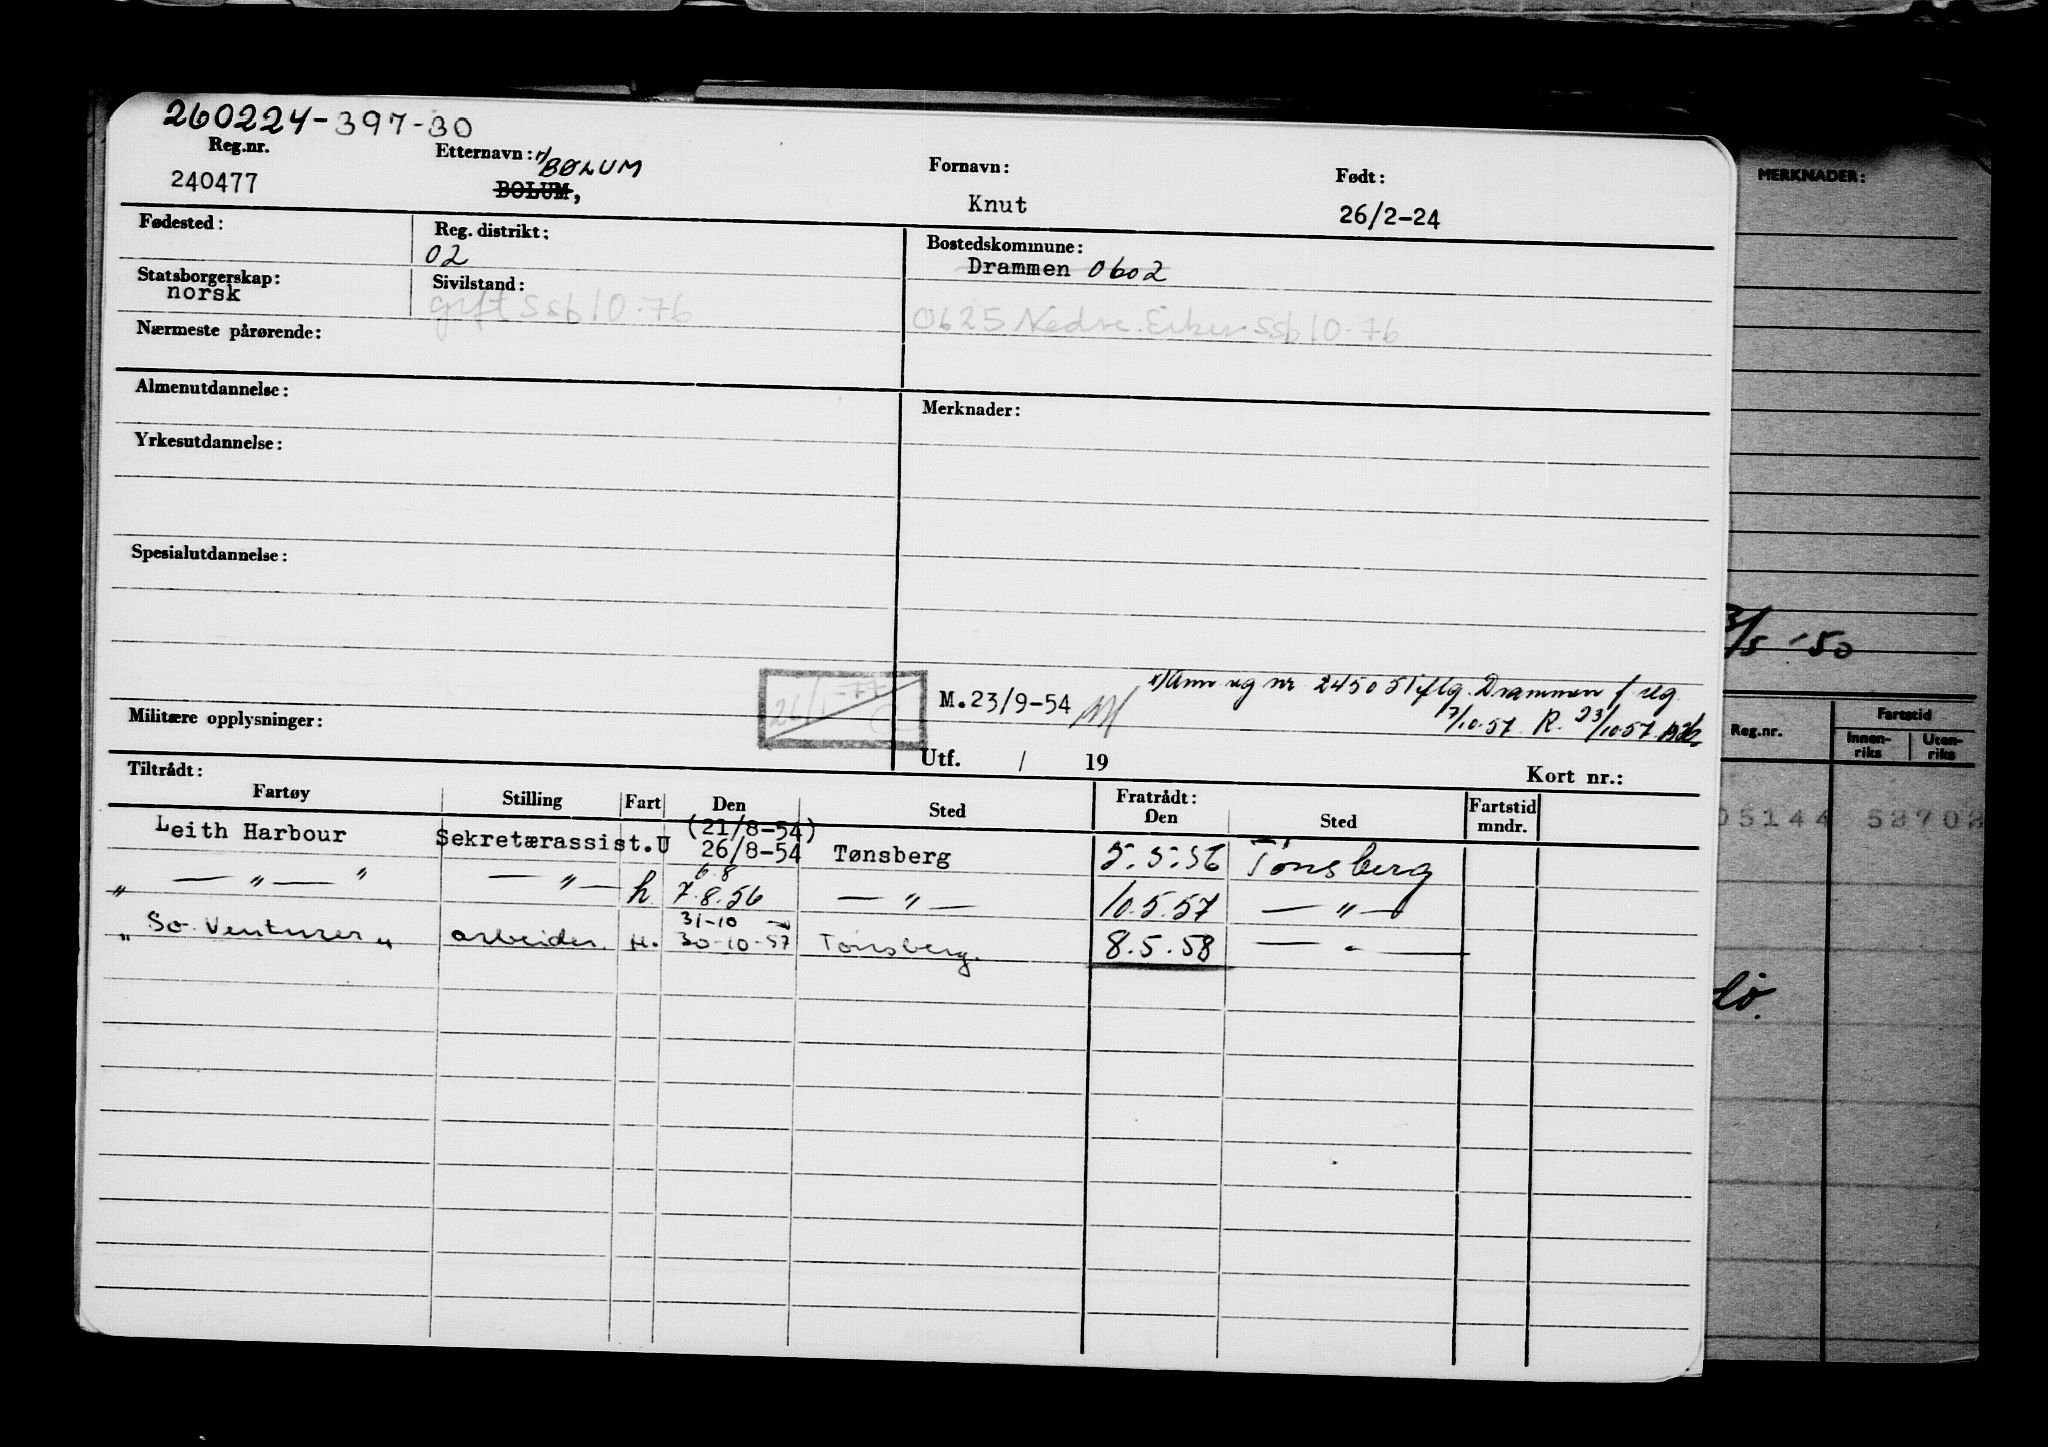 260224-397-30
Reg.nr. Etternavn: x/ BØLUM Fornavn: Født:
240477 BOLUM, Knut 26/2-24
Fødested: Reg. distrikt: 02 Bostedskommune: Drammen 0602
Statsborgerskap: norsk Sivilstand: gift Ssb 10.76 0625 Nedre Eiker Ssb 10.76
Nærmeste pårørende:
Almenutdannelse: Merknader:
Yrkesutdannelse:
Spesialutdannelse:
M.23/9-54 x/ Ann reg nr 245051 Drammen f reg
7/10.57 R. 23/10.57
26/1-77
Militære opplysninger:
Utf. / 19 Kort nr.:
Tiltrådt: Fratrådt:
Fartøy Stilling Fart Den Sted Den Sted Fartstid mndr.
(21/8-54)
Leith Harbour Sekretærassist. U 26/8-54 Tønsberg 5.5.56 Tønsberg
6.8
" — " — " — " — h. 7.8.56 — " — 10.5.57 — " —
31-10
" So. Venturer " arbeider. H. 30-10-57 Tønsberg. 8.5.58 — " —
MERKNADER:
/5 -50
Reg.nr. Fartstid
Innen-riks Uten-riks
05144 52702
lo.